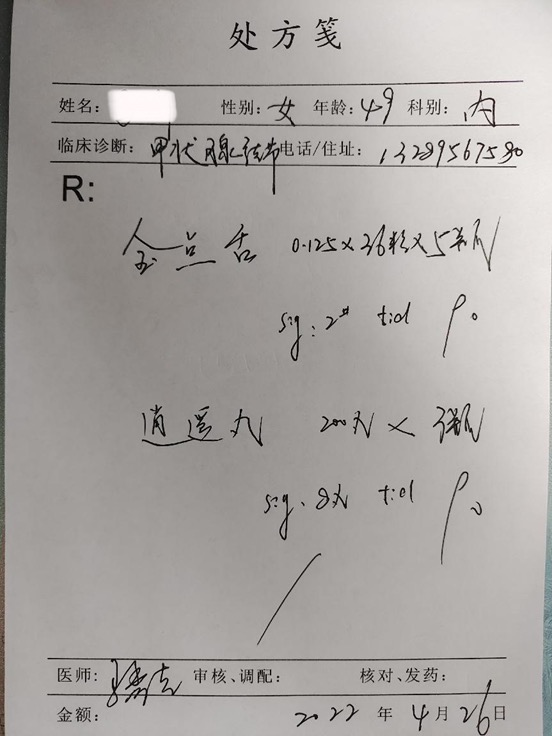 处方笺
姓名: 性别: 女 年龄: 49 科别: 内
临床诊断: 甲状腺结节 电话/住址: 13289567580
R:
金点舌 0.125×36粒×5瓶
sig: 2# tid po
逍遥丸 200丸×3瓶
sig. 8丸 tid po
医师: 审核、调配: 核对、发药:
金额: 2022 年 4 月 26 日